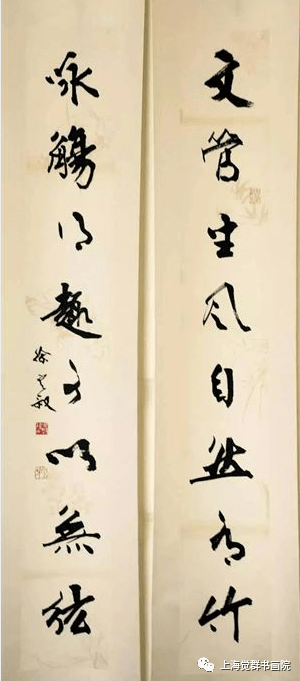 文管生风自然有竹
咏觴得趣可以無弦
徐
上海觉群书画院